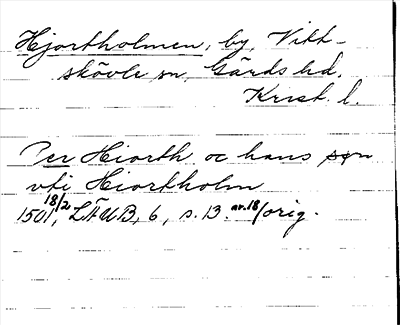 Hjortholmen, by, Vitt-
skövle sn, Gärds hd.
Krist. l.
Per Hiorth oc hans søn
vti Hiortholm
1501 18/2, LÄUB, 6, s. 13 nr. 18/orig.